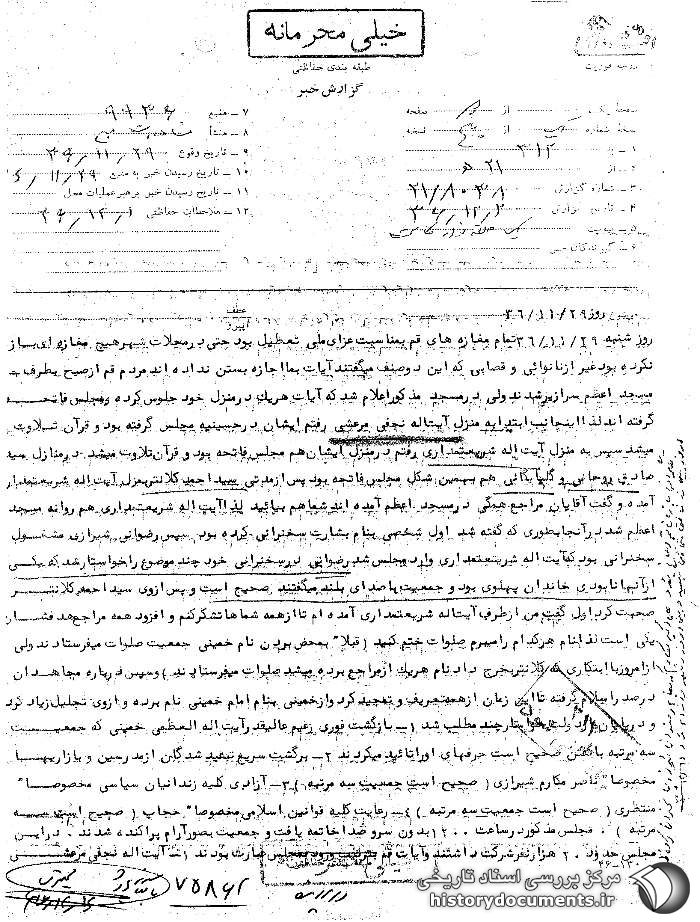 خیلی محرمانه
طبقه بندی حفاظتی
گزارش خبر
۷ – منبع
۸ – منشأ
۹ – تاریخ وقوع ۳۶/۱۱/۲۹
۱۰ – تاریخ رسیدن خبر به منبع ۳۶/۱۱/۲۹
۱۱ – تاریخ رسیدن خبر برهبر عملیات محل
۱۲ – ملاحظات حفاظتی ۳۶/۱۲/۱
از صفحه
نسخه شماره از نسخه
۱ – به ۳۱۲
۲ – از ۲۱ ه
۳ – شماره گزارش
۴ – تاریخ گزارش
۶ – گیرندگان خبر
روز ۳۶/۱۱/۲۹
عطف
پیرو
روز شنبه ۳۶/۱۱/۲۹ تمام مغازه های قم بمناسبت عزای ملی تعطیل بود حتی در محلات شهر هیچ مغازه ای باز
نکرده بود غیر از نانوائی و قصابی که این دو صنف میگفتند آیات بما اجازه بستن نداده اند مردم قم از صبح بطرف
مسجد اعظم سرازیر شدند ولی در مسجد مذکور اعلام شد که آیات هر یک در منزل خود جلوس کرده و مجلس فاتحه
گرفته اند لذا اینجانب ابتدا به منزل آیت اله نجفی مرعشی رفتم ایشان در حسینیه مجلس گرفته بود و قرآن تلاوت
میشد سپس به منزل آیت اله شریعتمداری رفتم در منزل ایشان هم مجلس فاتحه بود و قرآن تلاوت میشد در منازل سید
صادق روحانی و گلپایگانی هم بهمین شکل مجلس فاتحه بود پس از مدتی سید احمد کلانتر بمنزل آیت اله شریعتمداری
آمده و گفت آقایان مراجع همگی در مسجد اعظم آمده اند شما هم بیائید لذا آیت اله شریعتمداری هم روانه مسجد
اعظم شد در آنجا بطوری که گفته شد اول شخصی بنام بشارت سخنرانی کرده بود سپس رضوانی شیرازی مشغول
سخنرانی بود که آیت اله شریعتمداری وارد مجلس شد رضوانی در سخنرانی خود چند موضوع را خواستار شد که یکی
از آنها نابودی خاندان پهلوی بود و جمعیت با صدای بلند میگفتند صحیح است و پس از وی سید احمد کلانتر
صحبت کرد اول گفت من از طرف آیت اله شریعتمداری آمده ام تا از همه شماها تشکر کنم و افزود همه مراجع هدفشان
یکی است لذا نام هر کدام را میبرم صلوات ختم کنید ( قبلا" بمحض بردن نام خمینی جمعیت صلوات میفرستادند ولی
از امروز با ابتکاری که کلانتر بخرج داد نام هر یک از مراجع برده میشد صلوات میفرستادند ) وسپس درباره مجاهدان
در صدر اسلام گرفته تا این زمان از همه تعریف و تمجید کرد و از خمینی بنام امام خمینی نام برده و از وی تجلیل زیاد کرد
و در پایان خواستار چند مطلب شد ۱ – بازگشت فوری زعیم عالیقدر آیت اله العظمی خمینی که جمعیت
سه مرتبه با گفتن صحیح است حرفهای او را تائید میکردند ۲ – برگشت سریع تبعید شدگان از مدرسین و بازاریها
مخصوصا" ناصر مکارم شیرازی ( صحیح است جمعیت سه مرتبه ) ۳ – آزادی کلیه زندانیان سیاسی مخصوصا"
منتظری ( صحیح است جمعیت سه مرتبه ) ۴ – رعایت کلیه قوانین اسلامی مخصوصا" حجاب ( صحیح است سه
مرتبه ) . مجلس مذکور در ساعت ۱۲۰۰ بدون سر و صدا خاتمه یافت و جمعیت بصور آرام پراکنده شدند . در این
مجلس حدود ۲۰ هزار نفر شرکت داشتند و آیات قم عبارت بودند ۱ – آیت اله نجفی مرعشی
۷۵۸۶۲
مرکز بررسی اسناد تاریخی
historydocuments.ir